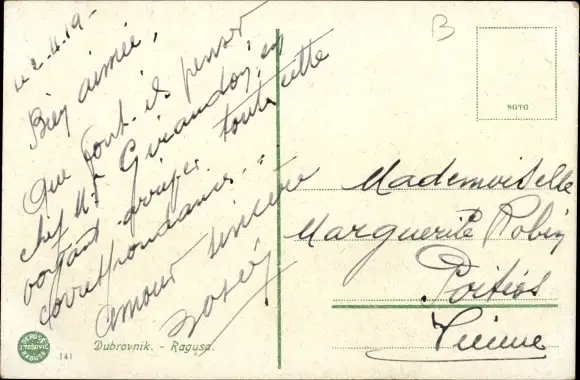 Le 2.4.19-
Bien aimée,
Que vont-ils penser
chez Mr Giraudon, en
voyant arriver toute cette
correspondance..
amour sincère
B
SGTG
Mademoiselle
Marguerite Robin
Poitiers
Vienne
Dubrovnik. - Ragusa.
J. TOŠOVIĆ
RAGUSA
141